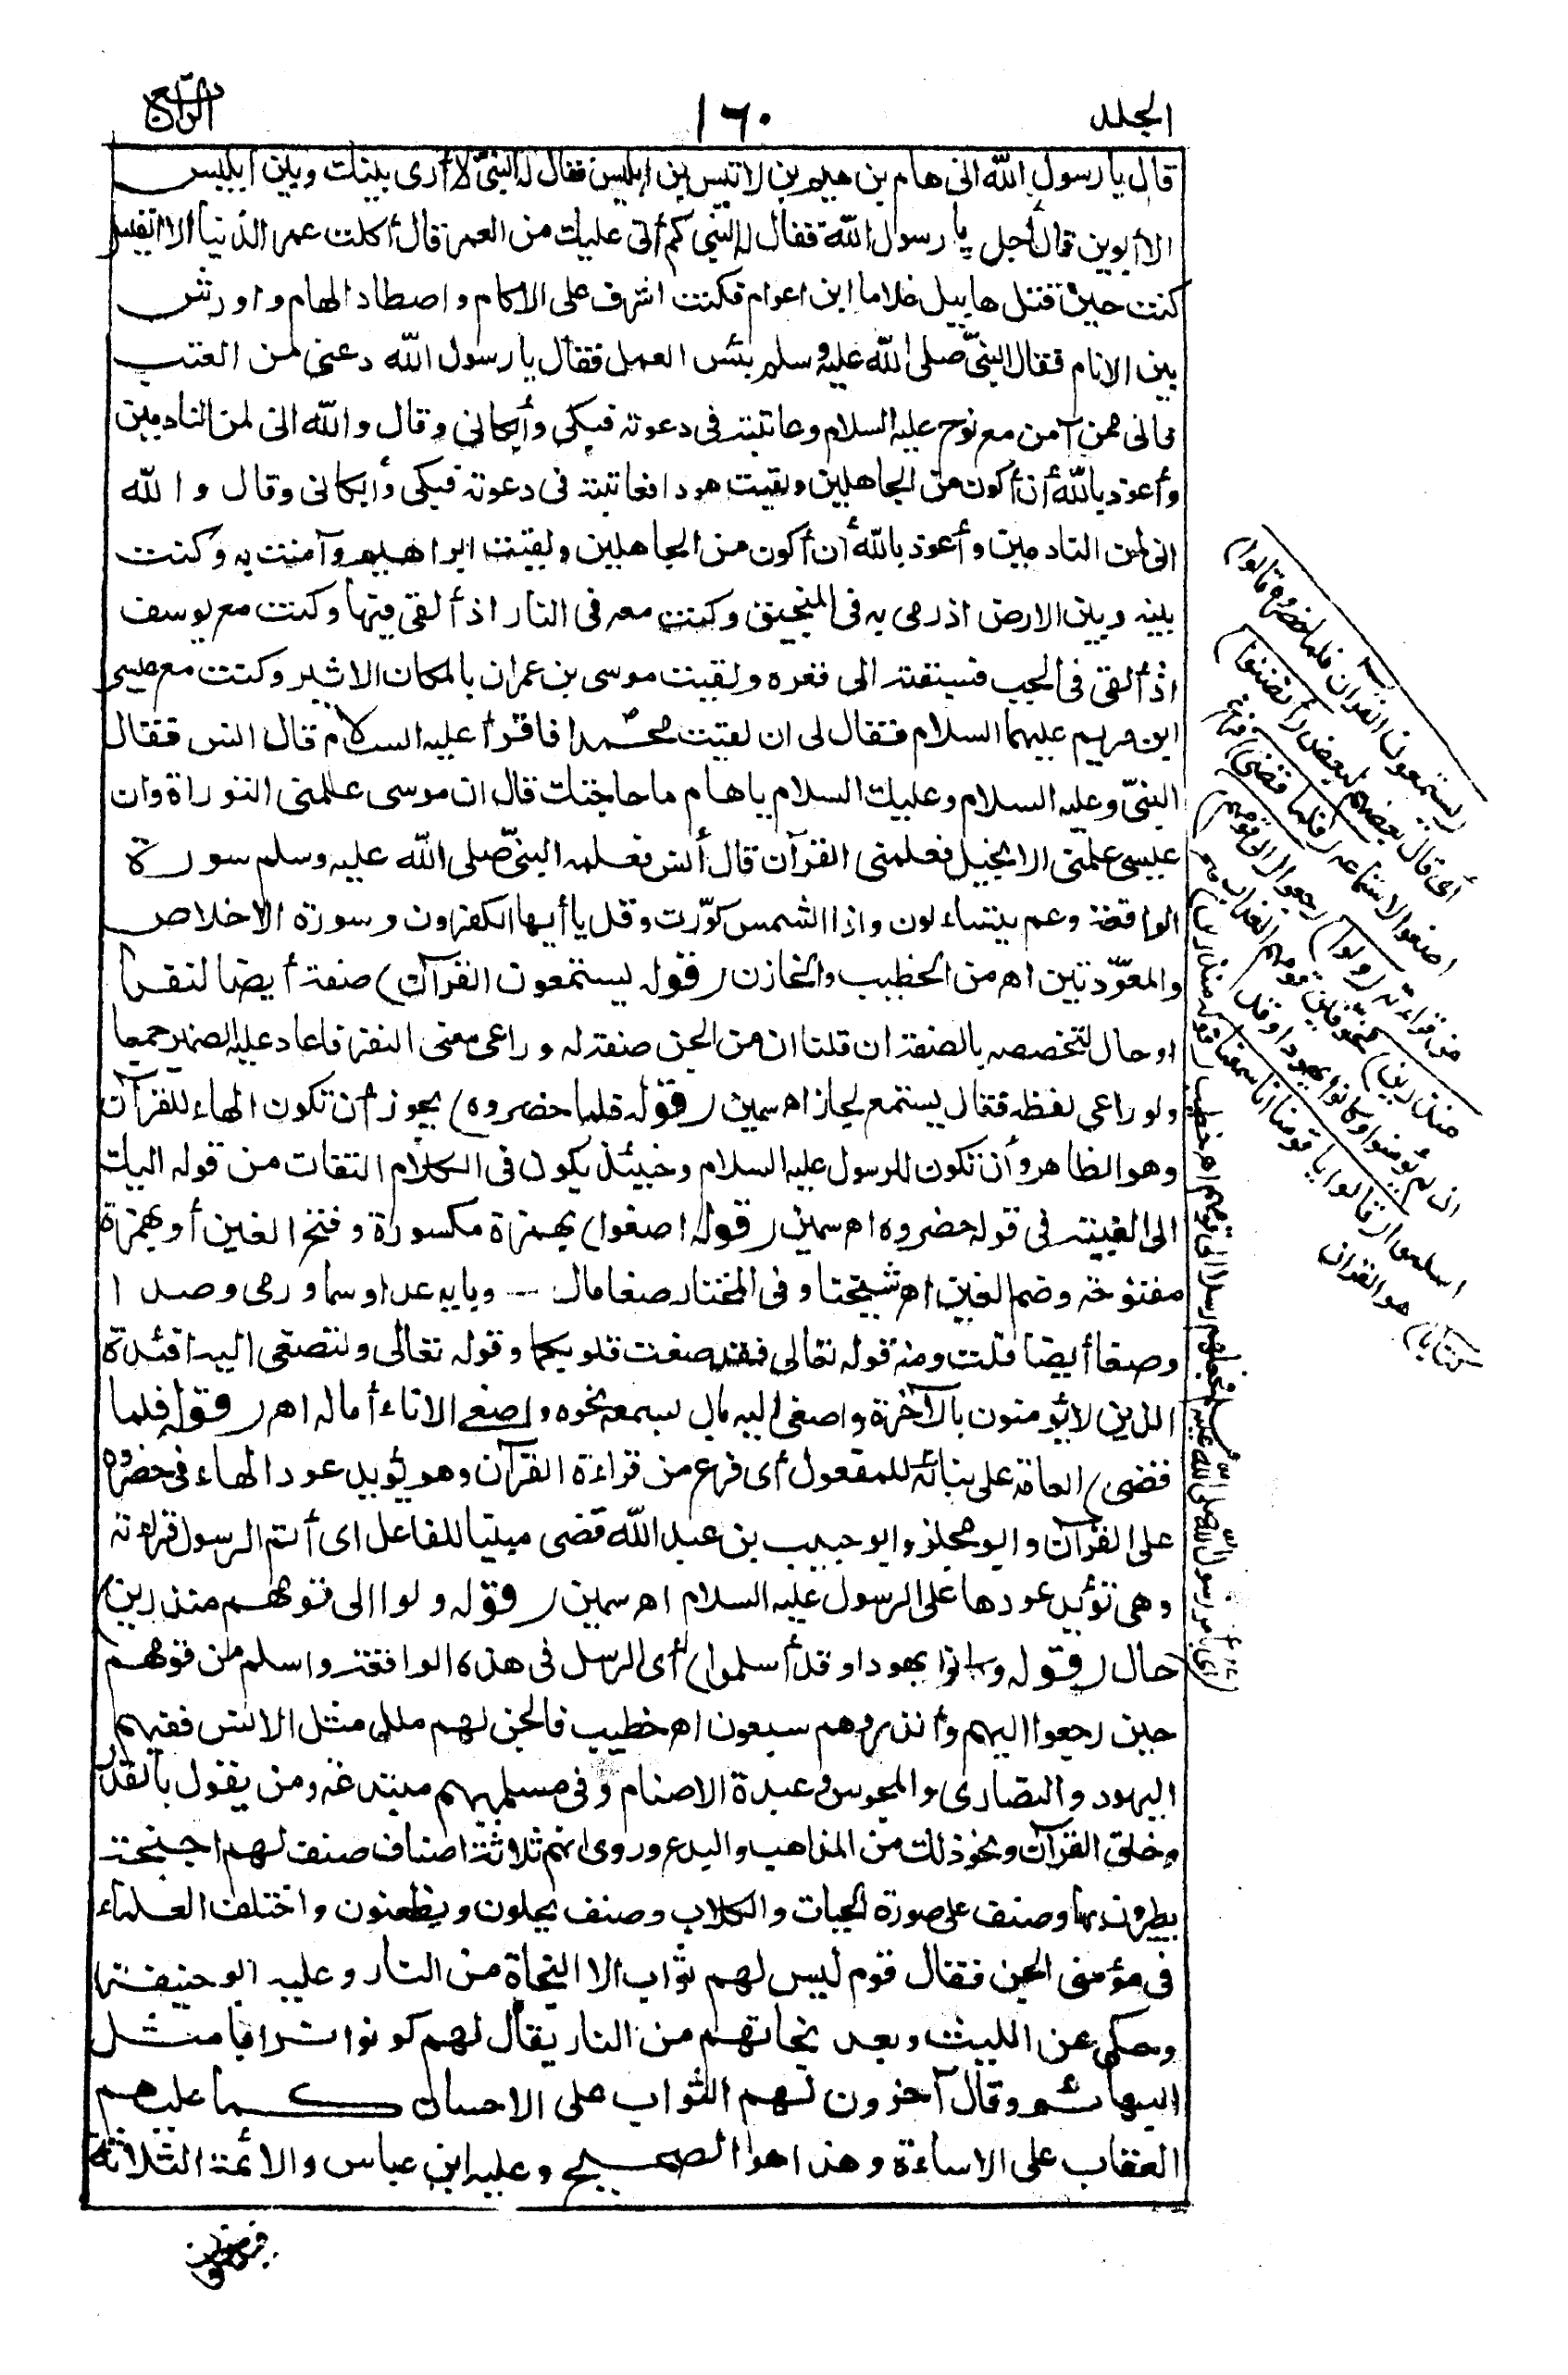 الجلد
١٦٠
الرابع
قال يا رسول الله انى هام بن هيم بن لاتيس بن ابليس فقال له النبىّ لا أرى بينك وبين ابليس
الا أبوين قال أجل يا رسول الله فقال له النبى كم أتى عليك من العمر قال أكلت عمر الدنيا الا القليل
كنت حين قتل هابيل غلاما ابن اعوام فكنت اشرف على الاكام واصطاد الهام واورش
بين الانام فقال النبىّ صلى الله عليه وسلم بئس العمل فقال يا رسول الله دعنى من العتب
فانى ممن آمن مع نوح عليه السلام وعاتبته فى دعوته فبكى وأبكانى وقال والله انى لمن النادمين
وأعوذ بالله أن أكون من الجاهلين ولقيت هودا فعاتبته فى دعوته فبكى وأبكانى وقال والله
انى لمن النادمين وأعوذ بالله أن أكون من الجاهلين ولقيت ابراهيم وآمنت به وكنت
بينه وبين الارض اذ رمى به فى المنجنيق وكنت معه فى النار اذ ألقى فيها وكنت مع يوسف
اذ ألقى فى الجب فسبقته الى قعره ولقيت موسى بن عمران بالمكان الاثير وكنت مع عيسى
ابن مريم عليهما السلام فقال لى ان لقيت محمدا فاقرأ عليه السلام قال انس فقال
النبىّ وعليه السلام وعليك السلام يا هام ما حاجتك قال ان موسى علمنى التوراة وان
عيسى علمنى الانجيل فعلمنى القرآن قال أنس فعلمه النبىّ صلى الله عليه وسلم سورة
الواقعة وعم يتساءلون واذا الشمس كوّرت وقل يا أيها الكفرون وسورة الاخلاص
والمعوّذتين اهـ من الخطيب والخازن (قوله يستمعون القرآن) صفة أيضا لنفرا
او حال لتخصصه بالصفة ان قلنا ان من الجن صفة له وراعى معنى النفر فاعاد عليه الضمير جمعا
ولو راعى لفظه فقال يستمع لجاز اهـ سمين (قوله فلما حضروه) يجوز أن تكون الهاء للقرآن
وهو الظاهر وأن تكون للرسول عليه السلام وحينئذ يكون فى الكلام التفات من قوله اليك
الى الغيبة فى قوله حضروه اهـ سمين (قوله اصغوا) بهمزة مكسورة وفتح الغين أو بهمزة
مفتوحة وضم الغين اهـ شيخنا وفى المختار صغا مال وبابه عدا وسما ورمى وصدا
وصغا أيضا قلت ومنه قوله تعالى فقد صغت قلوبكما وقوله تعالى ولتصغى اليه افئدة
الذين لا يؤمنون بالآخرة واصغى اليه مال بسمعه نحوه واصغى الاناء أماله اهـ (قوله فلما
قضى) العامة على بنائه للمفعول أى فرغ من قراءة القرآن وهو يؤيد عود الهاء فى حضروه
على القرآن وابو مجلز وابو حبيب بن عبد الله قضى مبنيا للفاعل اى أتم الرسول قراءته
وهى تؤيد عودها على الرسول عليه السلام اهـ سمين (قوله ولوا الى قومهم منذرين)
حال (قوله وكانوا يهودا وقد أسلموا) أى الرسل فى هذه الواقعة واسلم من قومهم
حين رجعوا اليهم وأنذروهم سبعون اهـ خطيب فالجن لهم ملل مثل الانس ففيهم
اليهود والنصارى والمجوس وعبدة الاصنام وفى مسلميهم مبتدعة ومن يقول بالقدر
وخلق القرآن ونحو ذلك من المذاهب والبدع وروى انهم ثلاثة اصناف صنف لهم اجنحة
يطيرون بها وصنف على صورة الحيات والكلاب وصنف يحلون ويظعنون واختلف العلماء
فى مؤمنى الجن فقال قوم ليس لهم ثواب الا النجاة من النار وعليه ابو حنيفة
وحكى عن الليث وبعد نجاتهم من النار يقال لهم كونوا ترابا مثل
البهائم وقال آخرون لهم الثواب على الاحسان كما عليهم
العقاب على الاساءة وهذا هو الصحيح وعليه ابن عباس والأئمة الثلاثة
(يستمعون القرآن فلما حضروه قالوا)
أى قال بعضهم لبعض (أنصتوا)
اصغوا لاستماعه (فلما قضى) فرغ
من قراءته (ولوا) رجعوا (الى قومهم
منذرين) مخوفين قومهم العذاب
ان لم يؤمنوا وكانوا يهودا وقد
اسلموا (قالوا يا قومنا انا سمعنا
كتابا) هو القرآن